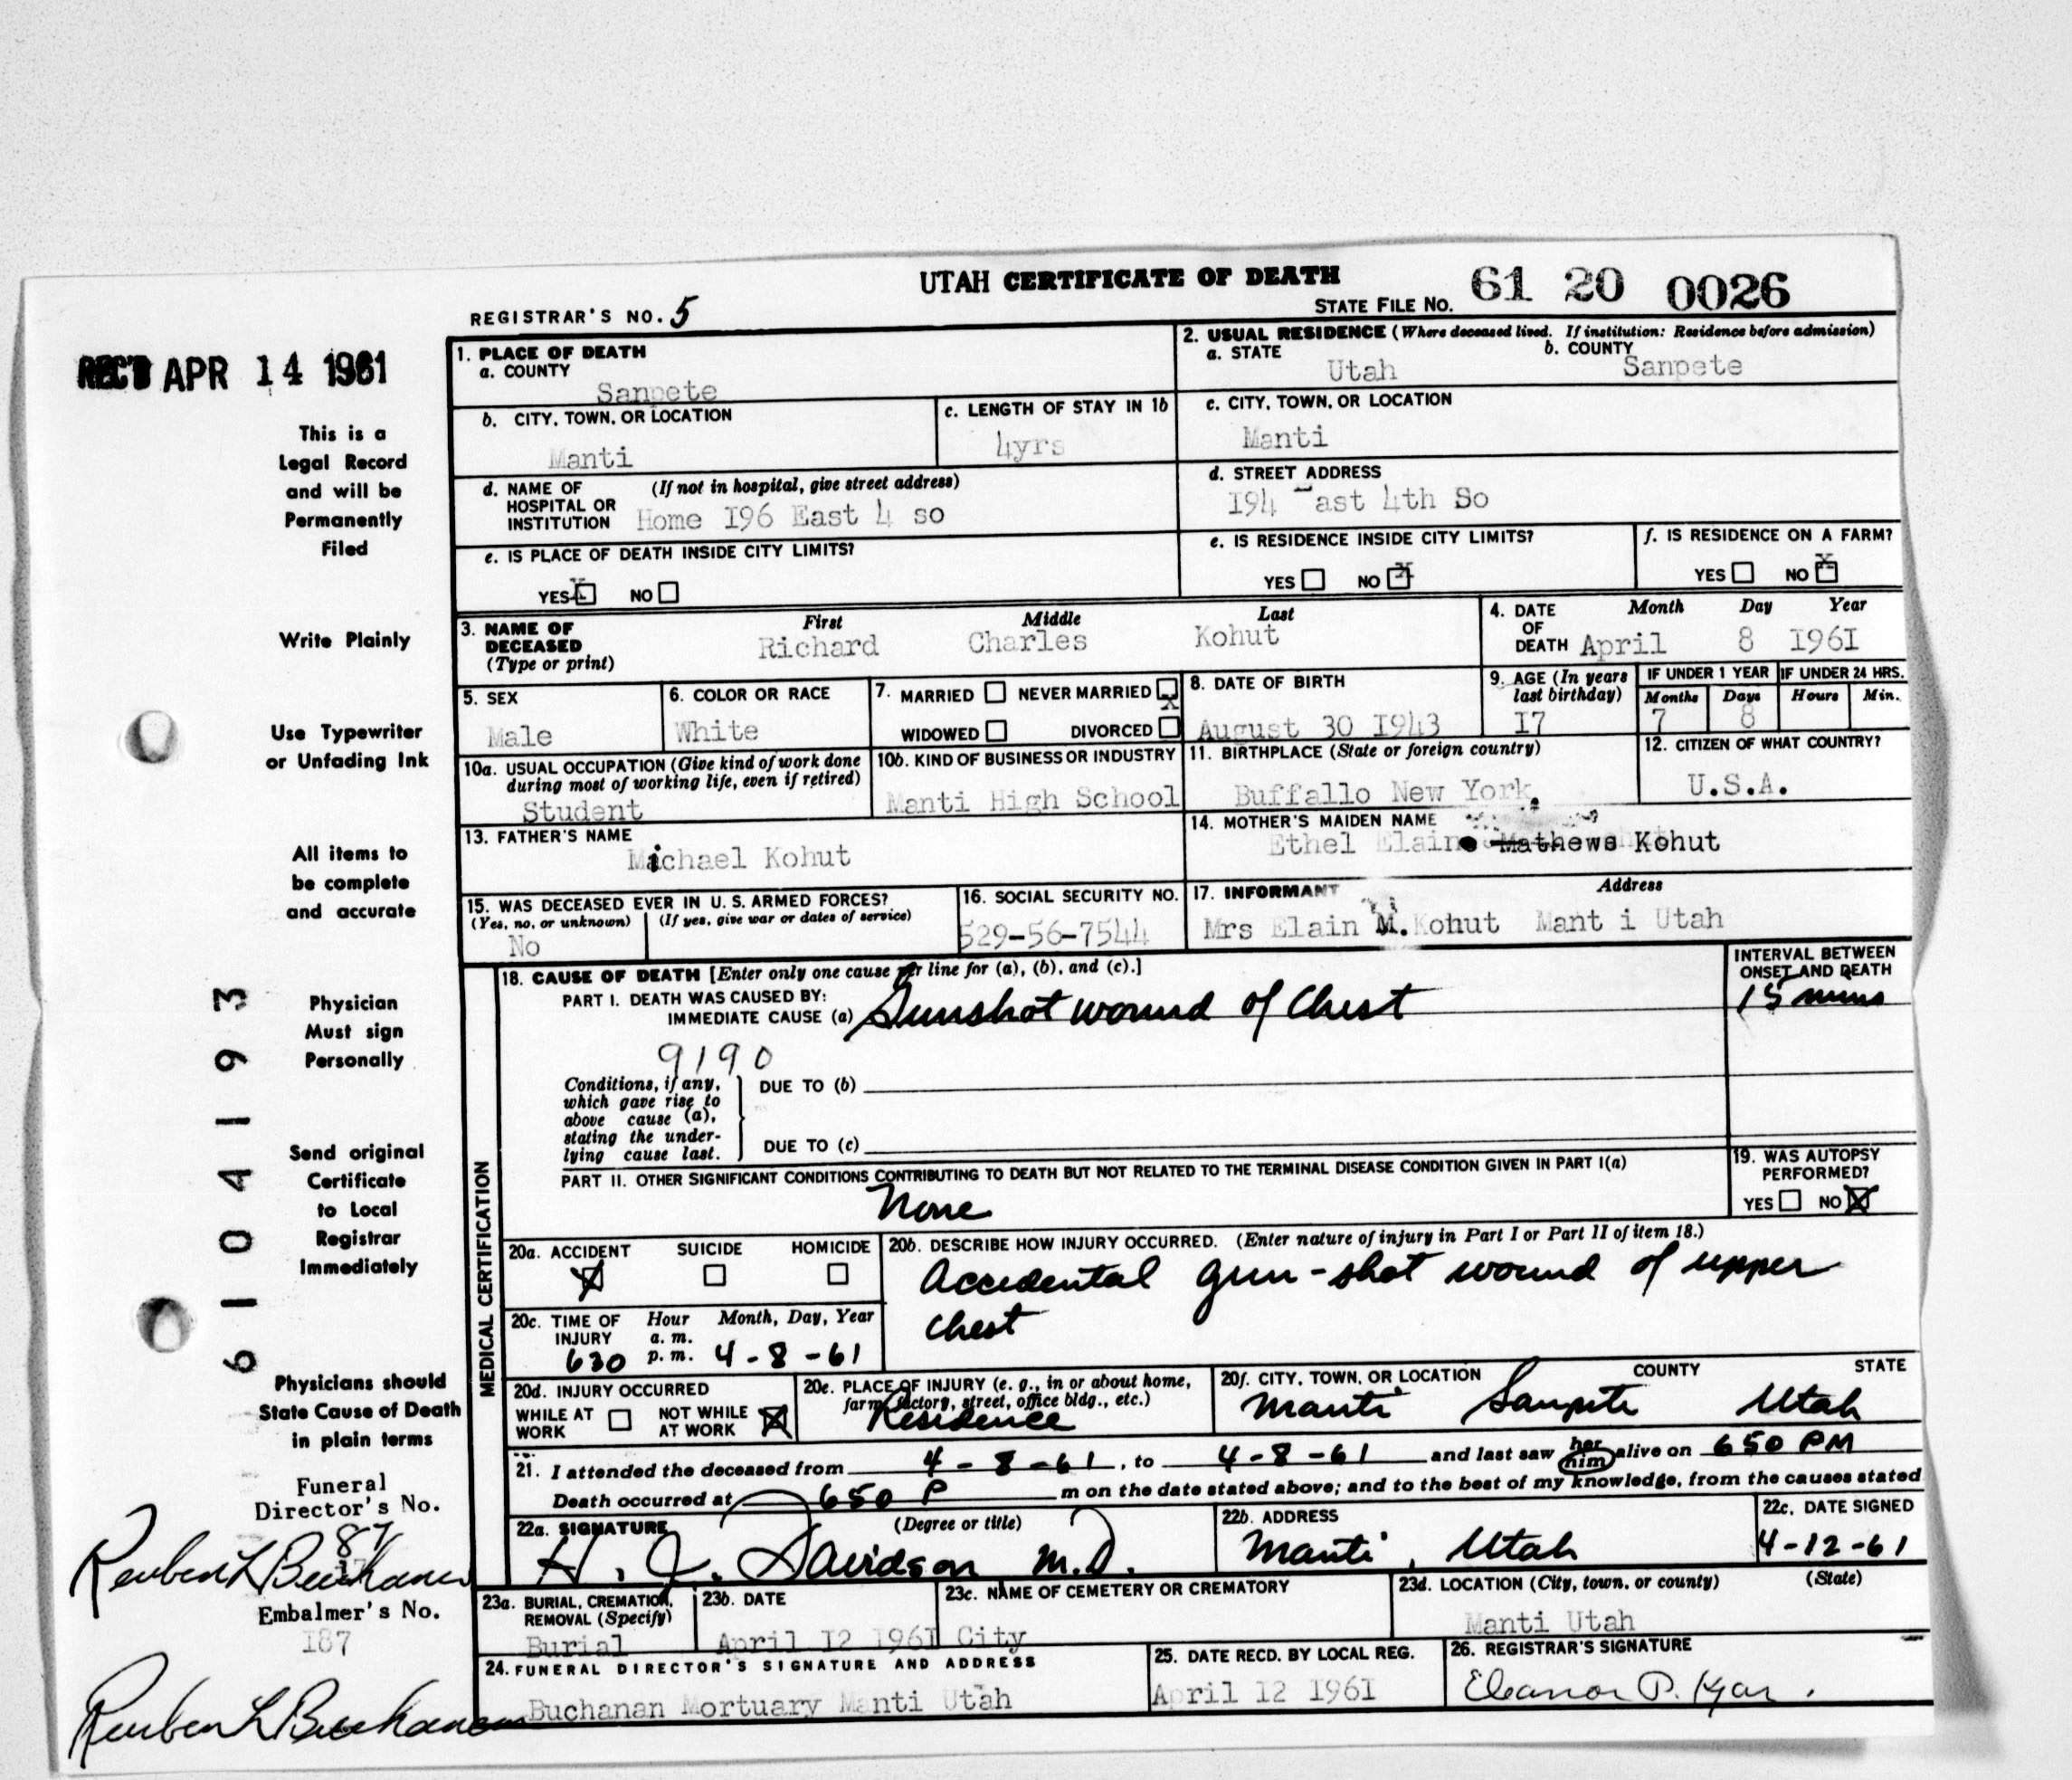 UTAH CERTIFICATE OF DEATH
STATE FILE NO. 61 20 0026
REGISTRAR'S NO. 5
REC'D APR 14 1961
This is a
Legal Record
and will be
Permanently
Filed
Write Plainly
Use Typewriter
or Unfading Ink
All items to
be complete
and accurate
Physician
Must sign
Personally
Send original
Certificate
to Local
Registrar
Immediately
Physicians should
State Cause of Death
in plain terms
Funeral
Director's No.
87
Reuben L Buchanan
Embalmer's No.
I87
Reuben L Buchanan
61041193
1. PLACE OF DEATH
a. COUNTY
Sanpete
b. CITY, TOWN, OR LOCATION
Manti
c. LENGTH OF STAY IN 1b
4yrs
d. NAME OF HOSPITAL OR INSTITUTION (If not in hospital, give street address)
Home I96 East 4 so
e. IS PLACE OF DEATH INSIDE CITY LIMITS?
YES X NO
2. USUAL RESIDENCE (Where deceased lived. If institution: Residence before admission)
a. STATE
Utah
b. COUNTY
Sanpete
c. CITY, TOWN, OR LOCATION
Manti
d. STREET ADDRESS
I94 East 4th So
e. IS RESIDENCE INSIDE CITY LIMITS?
YES NO X
f. IS RESIDENCE ON A FARM?
YES NO X
3. NAME OF DECEASED (Type or print)
First Middle Last
Richard Charles Kohut
4. DATE OF DEATH
Month Day Year
April 8 I96I
5. SEX
Male
6. COLOR OR RACE
White
7. MARRIED NEVER MARRIED X
WIDOWED DIVORCED
8. DATE OF BIRTH
August 30 I943
9. AGE (In years last birthday)
I7
IF UNDER 1 YEAR
Months Days
7 8
IF UNDER 24 HRS.
Hours Min.
10a. USUAL OCCUPATION (Give kind of work done during most of working life, even if retired)
Student
10b. KIND OF BUSINESS OR INDUSTRY
Manti High School
11. BIRTHPLACE (State or foreign country)
Buffallo New York.
12. CITIZEN OF WHAT COUNTRY?
U.S.A.
13. FATHER'S NAME
Michael Kohut
14. MOTHER'S MAIDEN NAME
Ethel Elaine Mathews Kohut
15. WAS DECEASED EVER IN U. S. ARMED FORCES?
(Yes, no, or unknown) (If yes, give war or dates of service)
No
16. SOCIAL SECURITY NO.
529-56-7544
17. INFORMANT Address
Mrs Elain M. Kohut Mant i Utah
MEDICAL CERTIFICATION
18. CAUSE OF DEATH [Enter only one cause per line for (a), (b), and (c).]
PART I. DEATH WAS CAUSED BY:
IMMEDIATE CAUSE (a) Gunshot wound of Chest
INTERVAL BETWEEN ONSET AND DEATH
15 mins
9190
Conditions, if any, which gave rise to above cause (a), stating the underlying cause last.
DUE TO (b)
DUE TO (c)
PART II. OTHER SIGNIFICANT CONDITIONS CONTRIBUTING TO DEATH BUT NOT RELATED TO THE TERMINAL DISEASE CONDITION GIVEN IN PART I(a)
None
19. WAS AUTOPSY PERFORMED?
YES NO X
20a. ACCIDENT X SUICIDE HOMICIDE
20b. DESCRIBE HOW INJURY OCCURRED. (Enter nature of injury in Part I or Part II of item 18.)
Accidental gun-shot wound of upper
chest
20c. TIME OF INJURY Hour a. m. p. m. Month, Day, Year
630 4-8-61
20d. INJURY OCCURRED
WHILE AT WORK NOT WHILE AT WORK X
20e. PLACE OF INJURY (e. g., in or about home, farm, factory, street, office bldg., etc.)
Residence
20f. CITY, TOWN, OR LOCATION COUNTY STATE
Manti Sanpete Utah
21. I attended the deceased from 4-8-61, to 4-8-61 and last saw her him alive on 650 PM
Death occurred at 650 P m on the date stated above; and to the best of my knowledge, from the causes stated
22a. SIGNATURE (Degree or title)
H. J. Davidson M.D.
22b. ADDRESS
Manti, Utah
22c. DATE SIGNED
4-12-61
23a. BURIAL, CREMATION, REMOVAL (Specify)
Burial
23b. DATE
April I2 I96I
23c. NAME OF CEMETERY OR CREMATORY
City
23d. LOCATION (City, town, or county) (State)
Manti Utah
24. FUNERAL DIRECTOR'S SIGNATURE AND ADDRESS
Buchanan Mortuary Manti Utah
25. DATE RECD. BY LOCAL REG.
April I2 I96I
26. REGISTRAR'S SIGNATURE
Eleanor P. Kjar.